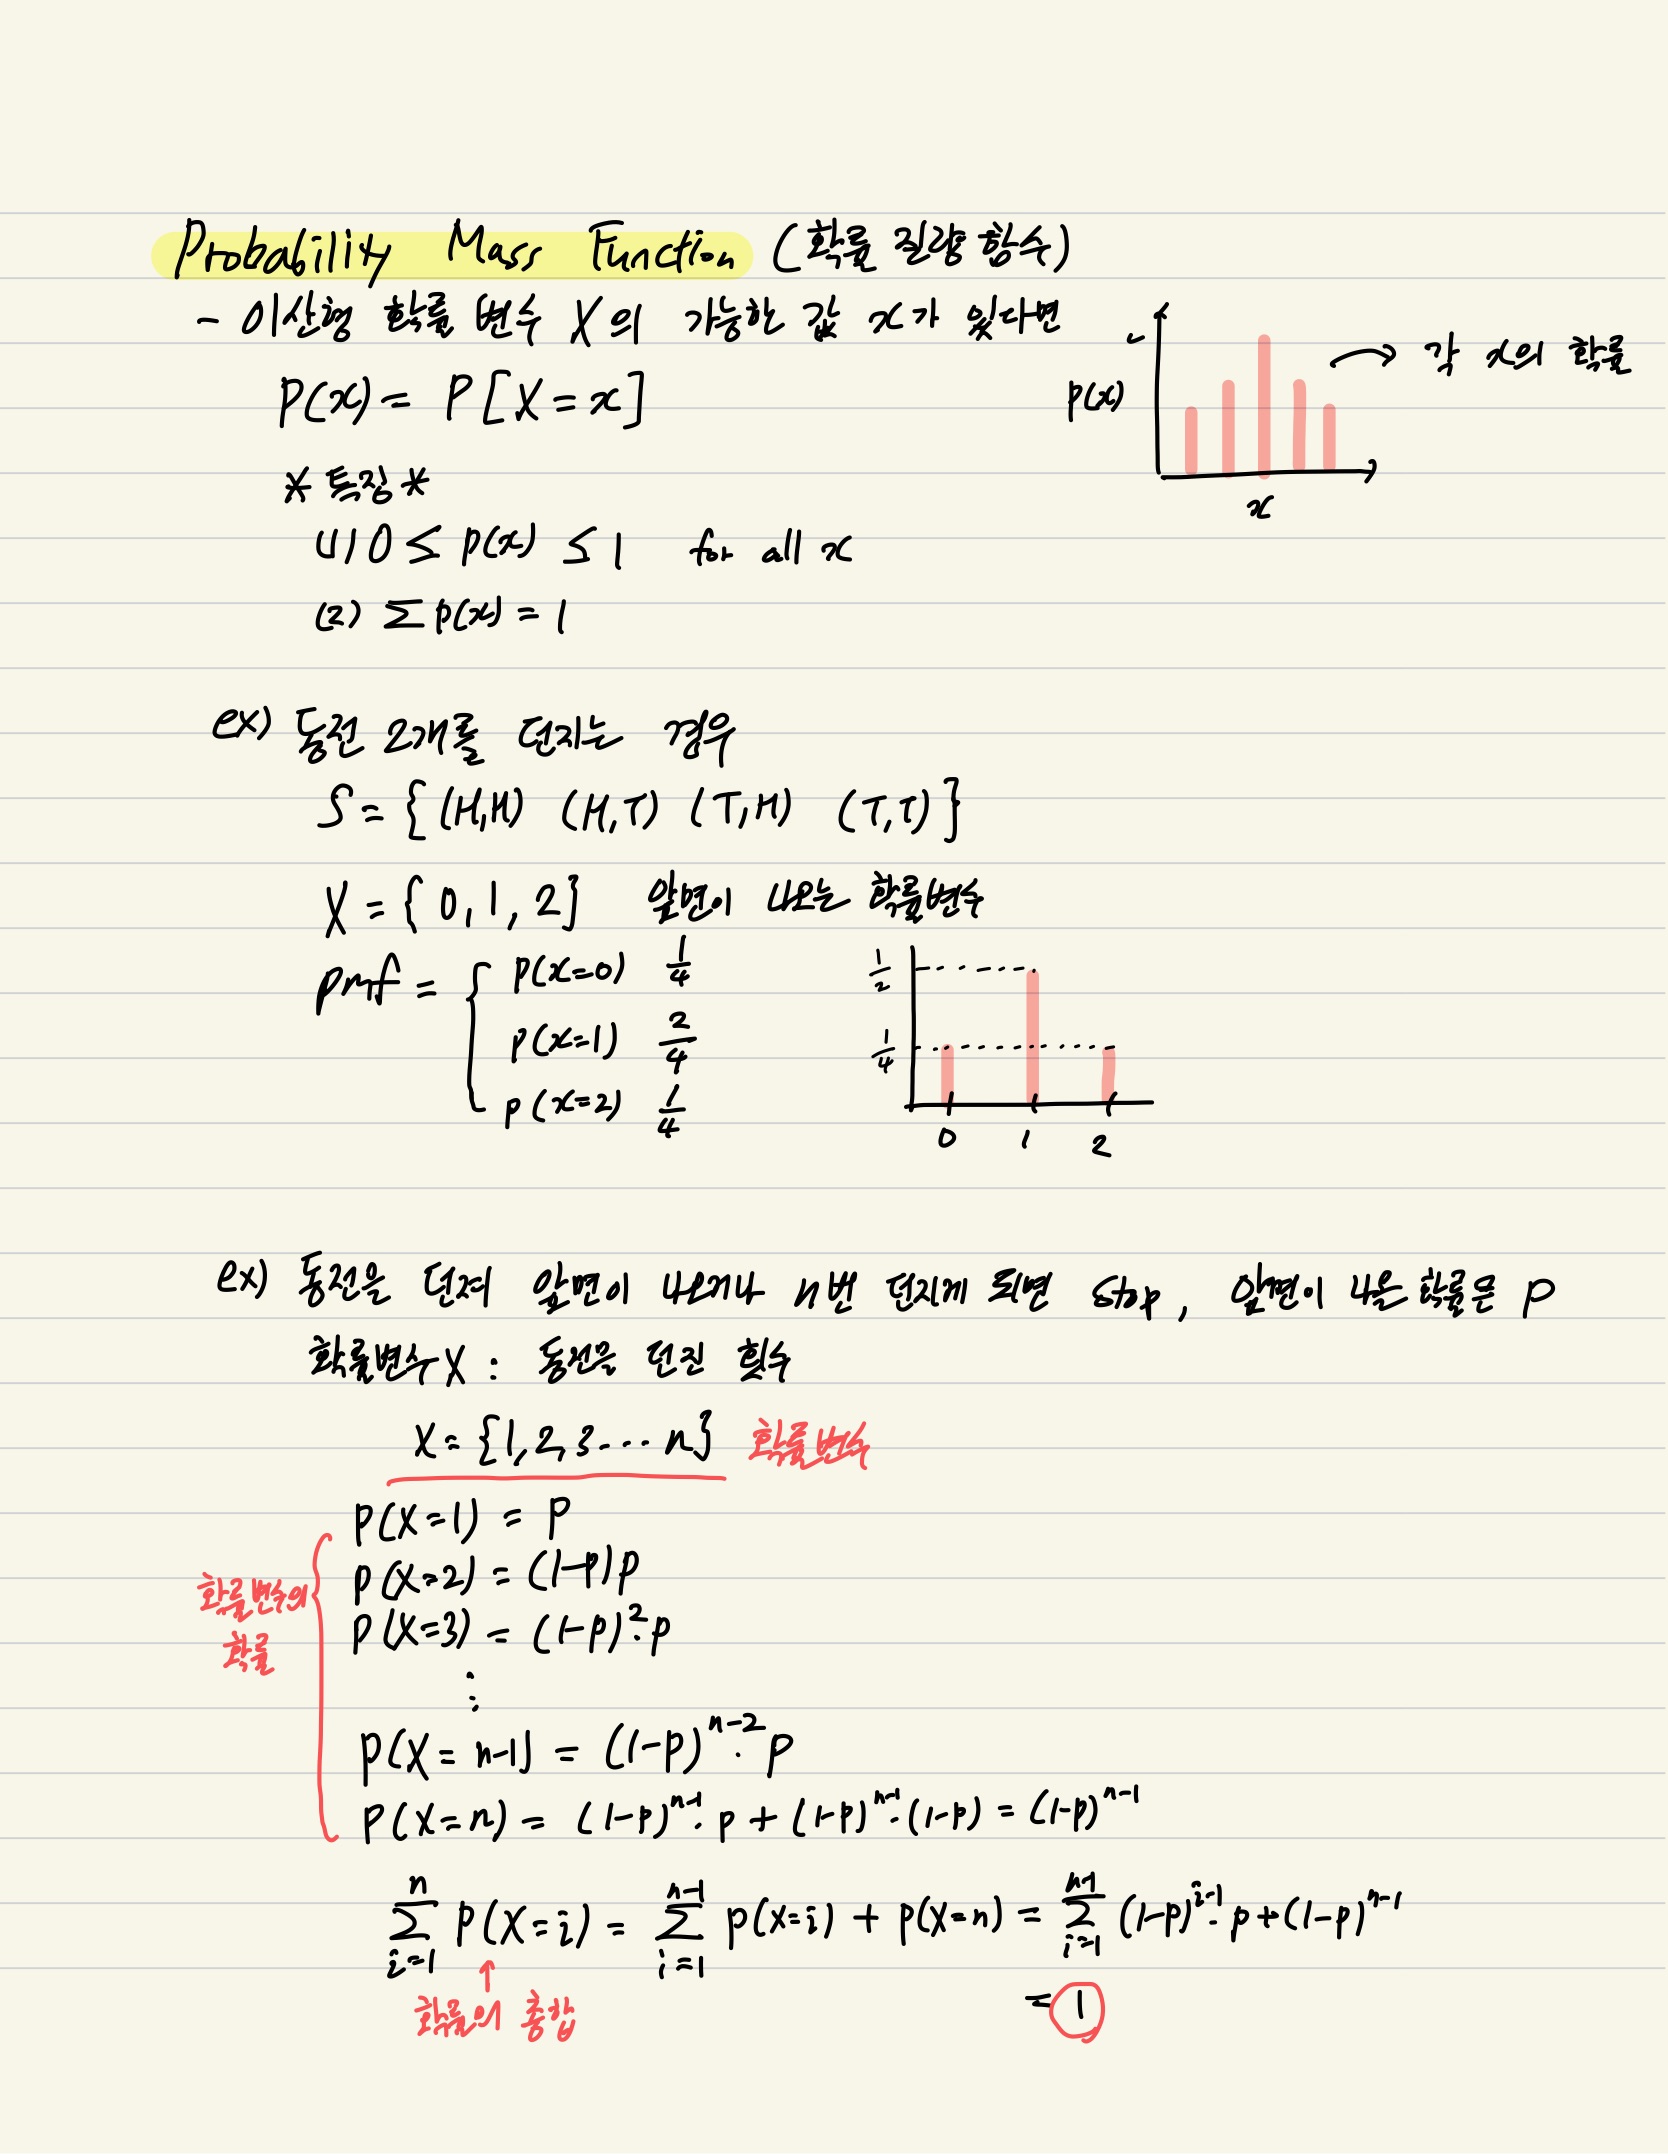 Probability Mass Function (확률 질량 함수)
- 이산형 확률 변수 X의 가능한 값 x가 있다면
P(x) = P[X = x]
p(x)
x
→ 각 x의 확률
* 특징 *
(1) 0 ≤ p(x) ≤ 1 for all x
(2) Σ p(x) = 1
ex) 동전 2개를 던지는 경우
S = { (H,H) (H,T) (T,H) (T,T) }
X = { 0, 1, 2 } 앞면이 나오는 확률변수
pmf = { p(x=0) 1/4
p(x=1) 2/4
p(x=2) 1/4
1/2
1/4
0 1 2
ex) 동전을 던져 앞면이 나오거나 n번 던지게 되면 stop, 앞면이 나올 확률은 p
확률변수 X : 동전을 던진 횟수
X = {1, 2, 3 ··· n} 확률변수
확률변수의
확률
P(X=1) = p
P(X=2) = (1-p)p
P(X=3) = (1-p)²·p
⋮
P(X=n-1) = (1-p)^{n-2}·p
P(X=n) = (1-p)^{n-1}·p + (1-p)^{n-1}·(1-p) = (1-p)^{n-1}
Σ_{i=1}^{n} P(X=i) = Σ_{i=1}^{n-1} p(X=i) + p(X=n) = Σ_{i=1}^{n-1} (1-p)^{i-1}·p + (1-p)^{n-1}
↑
확률의 총합
= 1